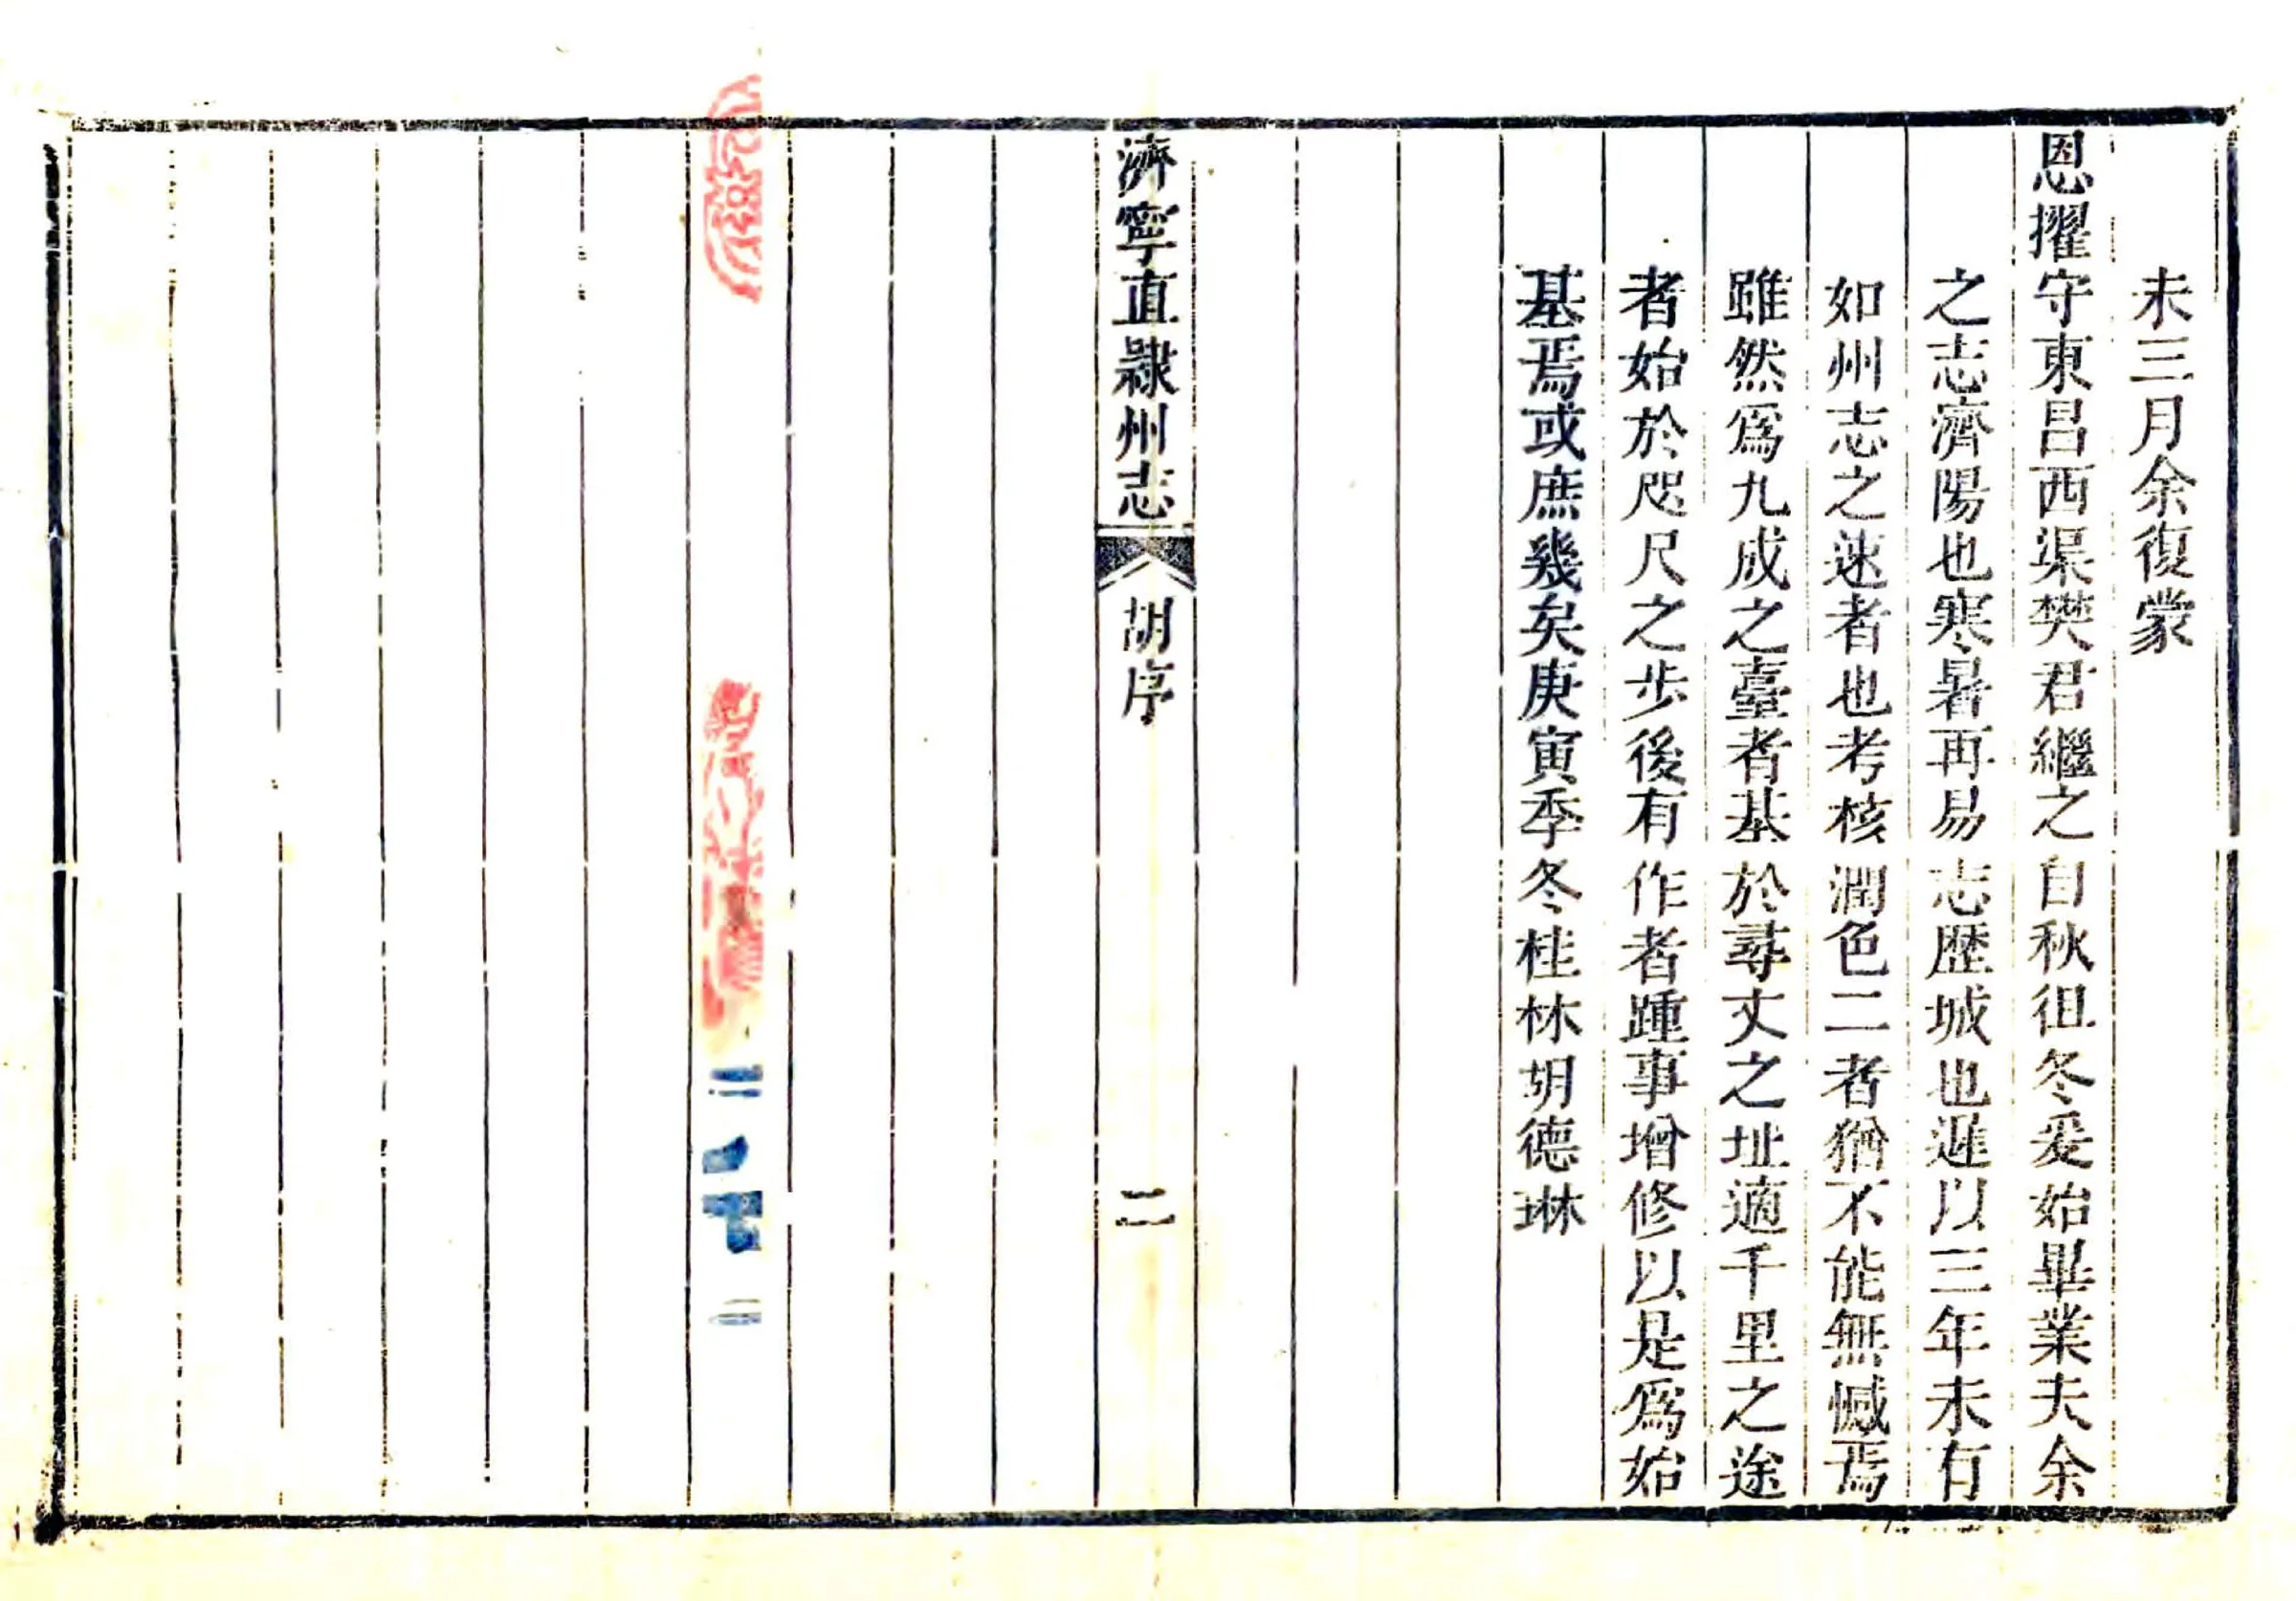 未三月余復蒙
恩擢守東昌西渠樊君繼之自秋徂冬爰始畢業夫余
之志濟陽也寒暑再易志歴城也遲以三年未有
如州志之速者也考核潤色二者猶不能無憾焉
雖然爲九成之臺者基於尋丈之址適千里之途
者始於咫尺之步後有作者踵事增修以是爲始
基焉或庶幾矣庚寅季冬桂林胡德琳
濟寧直隸州志
胡序
二